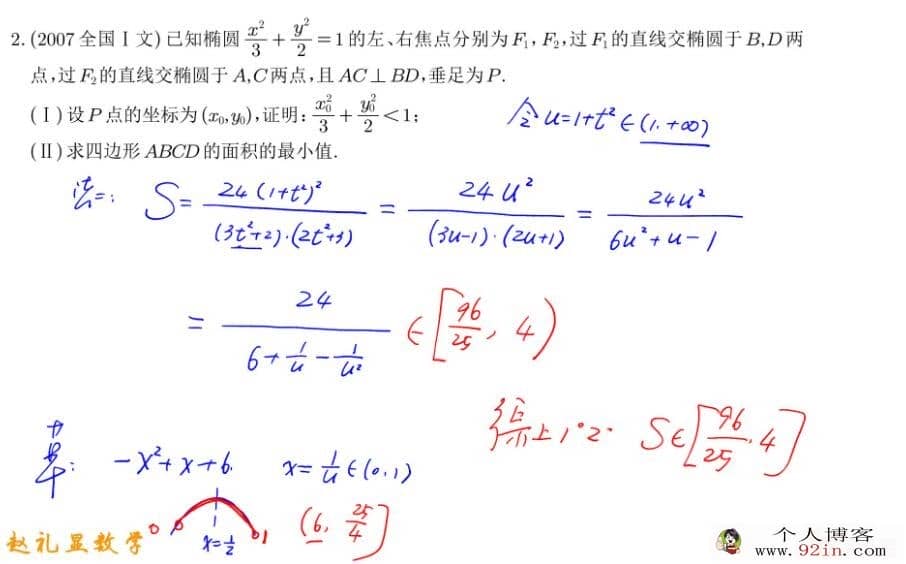 2.(2007 全国 Ⅰ 文)已知椭圆 x²/3 + y²/2 = 1 的左、右焦点分别为 F₁, F₂, 过 F₁ 的直线交椭圆于 B,D 两
点,过 F₂ 的直线交椭圆于 A,C 两点,且 AC⊥BD,垂足为 P.
(Ⅰ)设 P 点的坐标为(x₀,y₀),证明: x₀²/3 + y₀²/2 < 1;
令 u=1+t²∈(1,+∞)
(Ⅱ)求四边形 ABCD 的面积的最小值.
法二: S = 24(1+t²)²/((3t²+2)·(2t²+3)) = 24u²/((3u-1)·(2u+1)) = 24u²/(6u²+u-1)
= 24/(6+1/u-1/u²) ∈ [96/25, 4)
综上1°2° S∈[96/25, 4]
: -x²+x+6. x=1/u∈(0,1)
0 1 (6, 25/4]
x=1/2
赵礼显数学
个人博客
www.92in.com